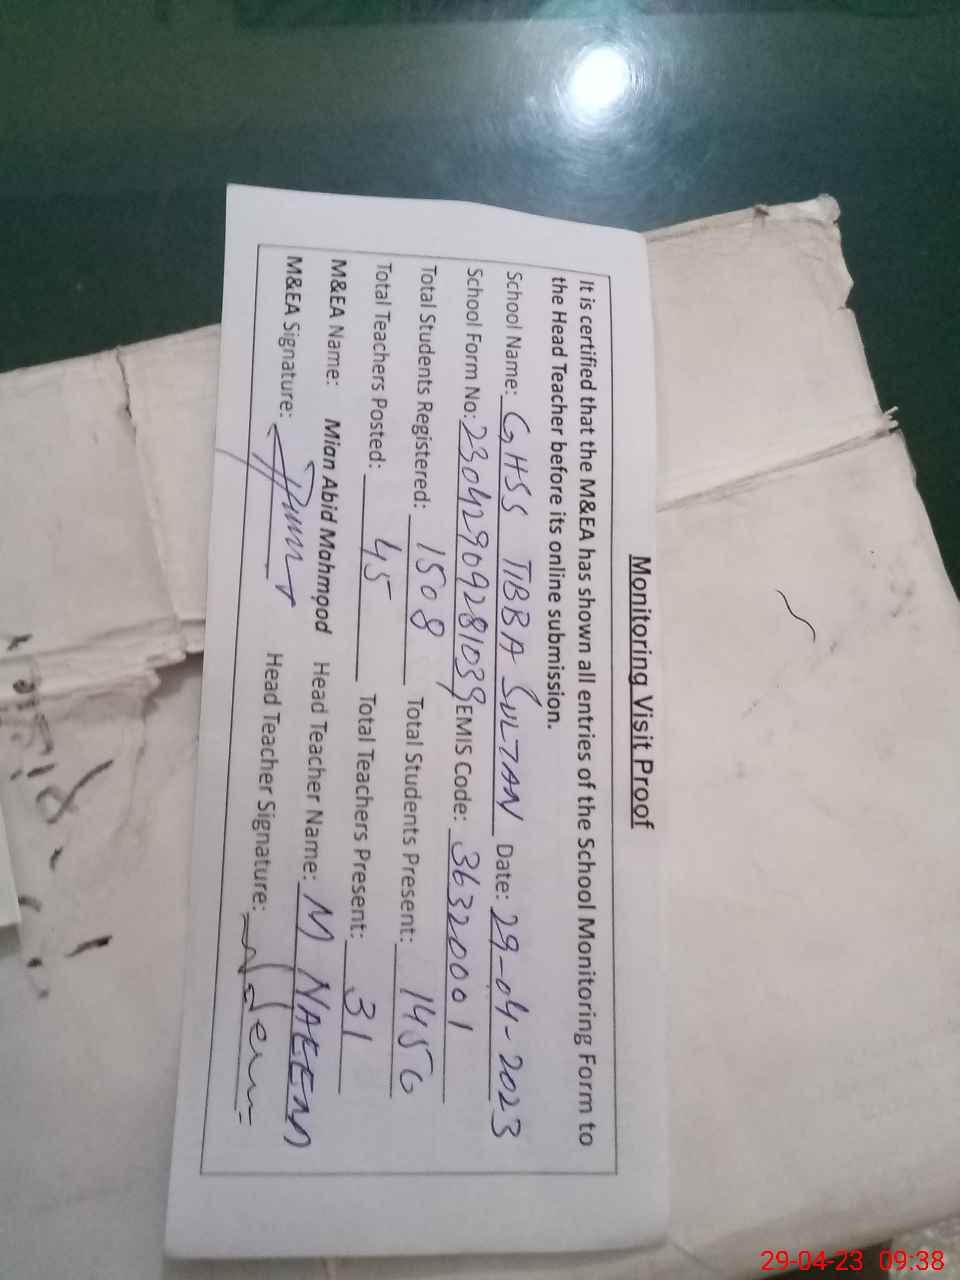 Monitoring Visit Proof
It is certified that the M&EA has shown all entries of the School Monitoring Form to
the Head Teacher before its online submission.
School Name: GHSS TIBBA SULTAN Date: 29-04-2023
School Form No: 23042909281039 EMIS Code: 36320001
Total Students Registered: 1508 Total Students Present: 1456
Total Teachers Posted: 45 Total Teachers Present: 31
M&EA Name: Mian Abid Mahmood Head Teacher Name: M NAEEM
M&EA Signature: Head Teacher Signature:
29-04-23 09:38